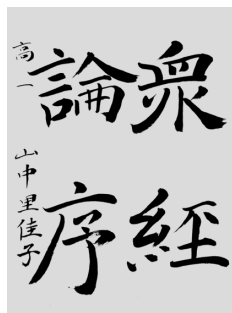 衆経
論序
高一 山中里佳子